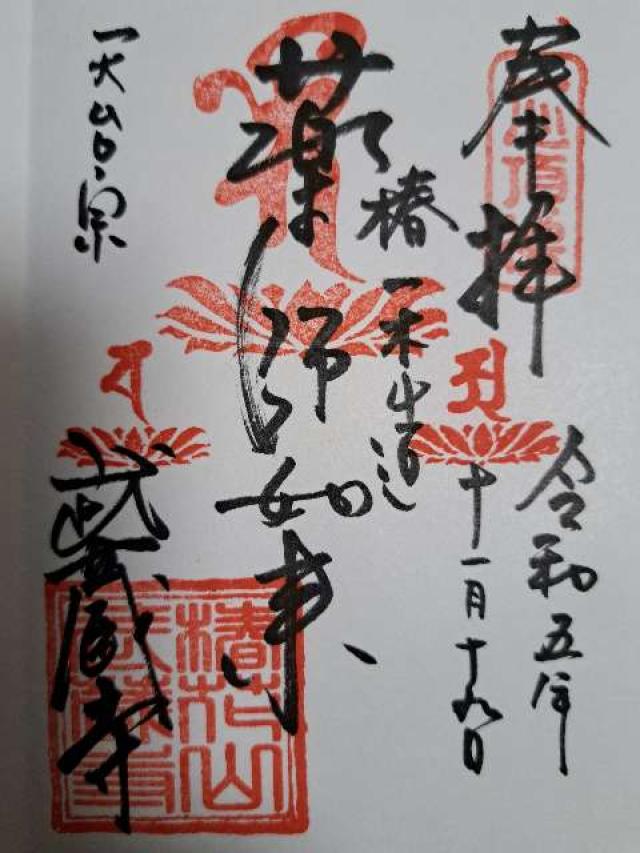 奉拝
令和五年
十一月十九日
椿一木
薬師如来
天台宗
武蔵寺
椿花山
武蔵寺